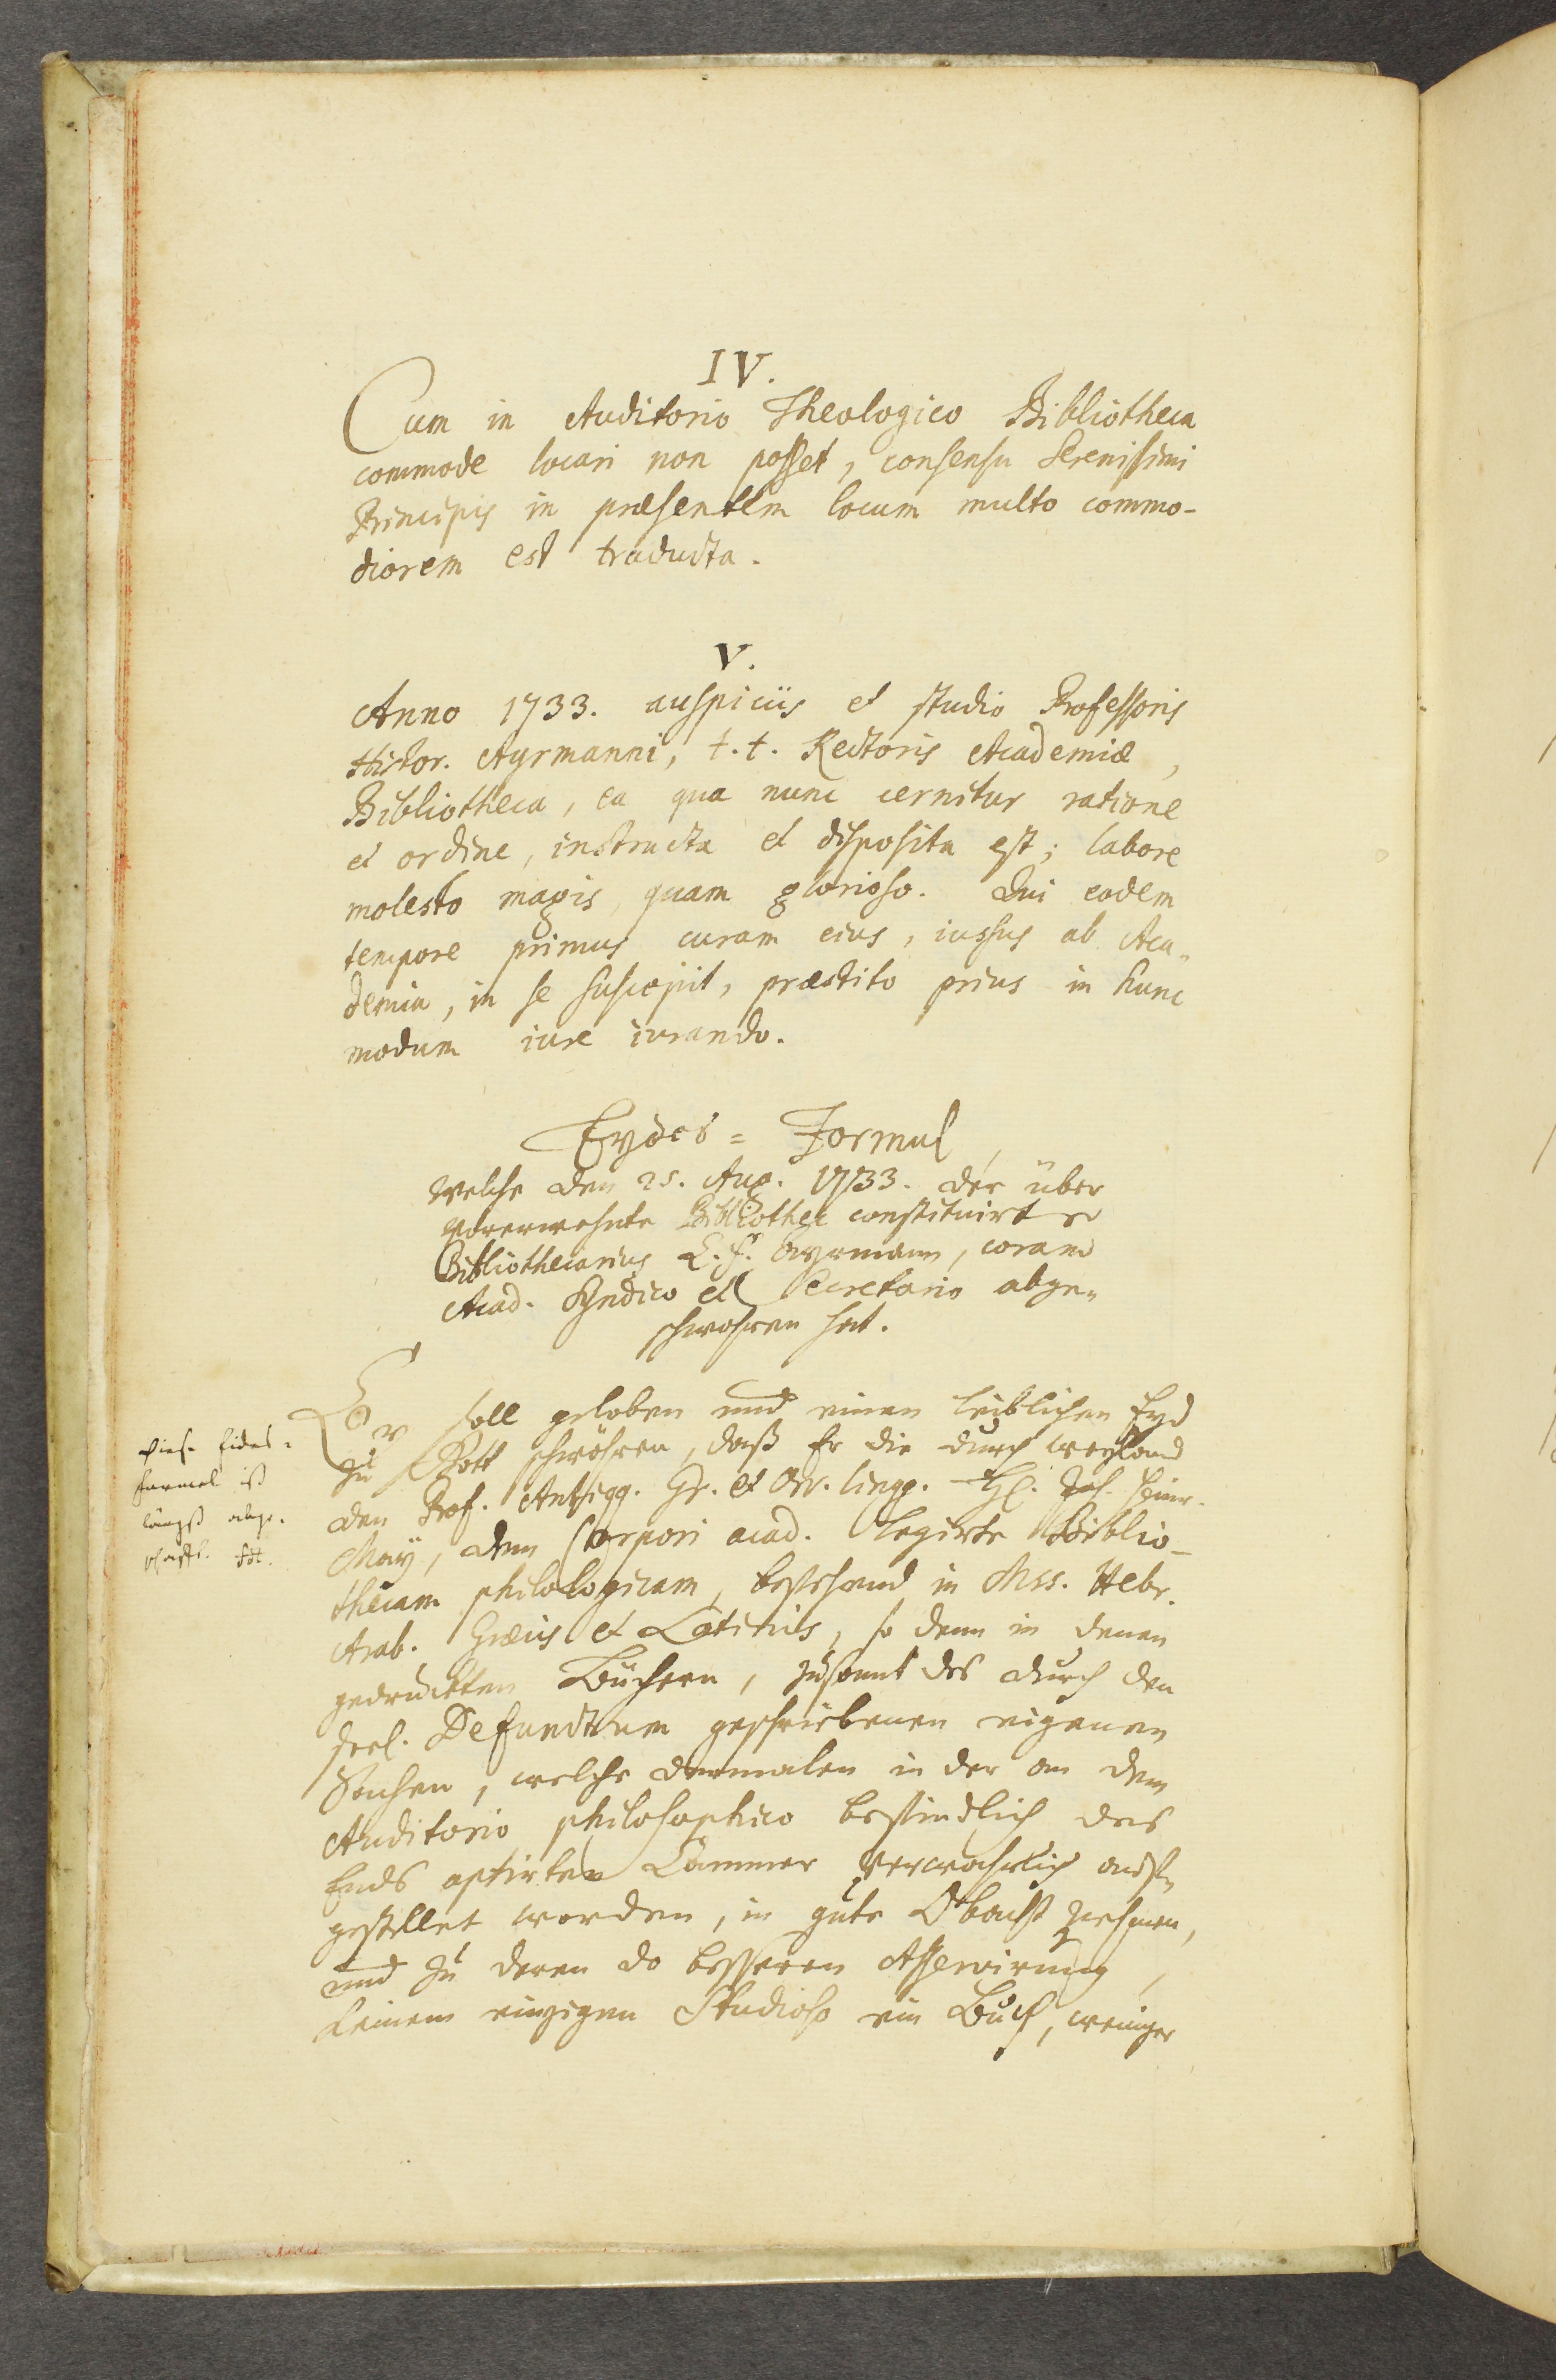 IV.
Cum in Auditorio Theologico Bibliotheca
commode locari non posset, consensu Serenissimi
Principis in præsentem locum multo commo-
diorem est traducta.
V.
Anno 1733. auspiciis et studio Professoris
Histor. Ayrmanni, t. t. Rectoris Academiæ,
Bibliotheca, ea qua nunc cernitur ratione
et ordine, instructa et disposita est; labore
molesto magis, quam glorioso. Qui eodem
tempore primus curam eius, iussus ab Aca-
demia, in se suscepit, præstito prius in hunc
modum iure iurando.
Eydes = Formul,
welche den 25. Aug. 1733. der über
vorerwehnte Bibliothec constituirte
Bibliothecarius C. F. Ayrmann, coram
Acad. Syndico et Secretario abge-
schwohren hat.
Er soll geloben und einen leiblichen Eyd
zu Gott schwöhren, daß Er die durch weyland
den Prof. Antiqq. Gr. et Orr. lingg. H. Joh. Heinr.
May, dem Corpori acad. legirte Biblio-
thecam philologicam, bestehend in Mss. Hebr.
Arab. Græcis et Latinis, so denn in denen
gedruckten Büchern, zusamt des durch den
seel. Defunctum geschriebenen eigenen
Sachen, welche dermalen in der an dem
Auditorio philosophico befindlich des
Ends aptirten Cammer verwahrlich
gestellet worden, in gute Obacht nehmen,
und zu deren do besseren Asservirung,
keinem einzigen Studioso ein Buch, weniger
Diese Eides-
formel ist
längst abge-
schafft.